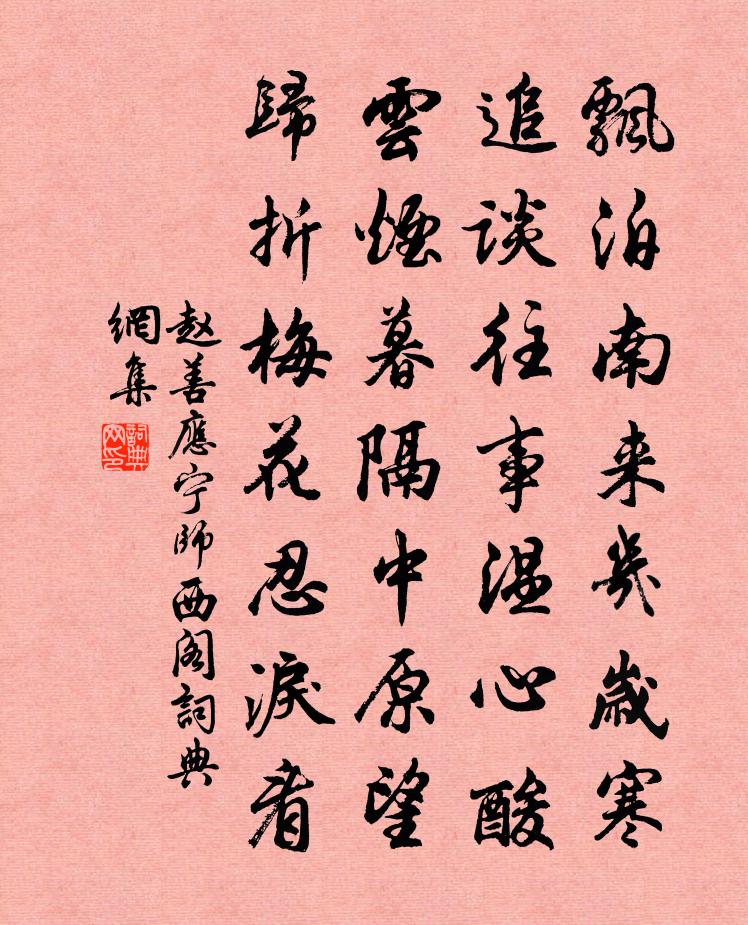 飄泊南来幾歲寒
追談往事温心酸
雲煙暮隔中原望
歸折梅花忍淚看
赵善應宁師西阁詞典
網集
詞典
网印